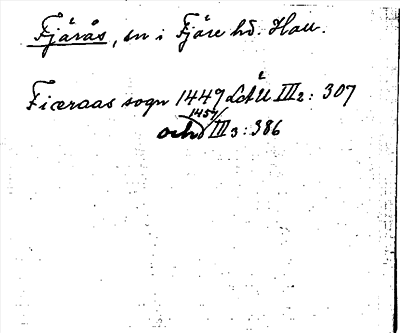 Fjärås, sn i Fjäre hd. Hall.
Ficeraas sogn 1449 LdÅU III2: 307
och 1454 III3: 386